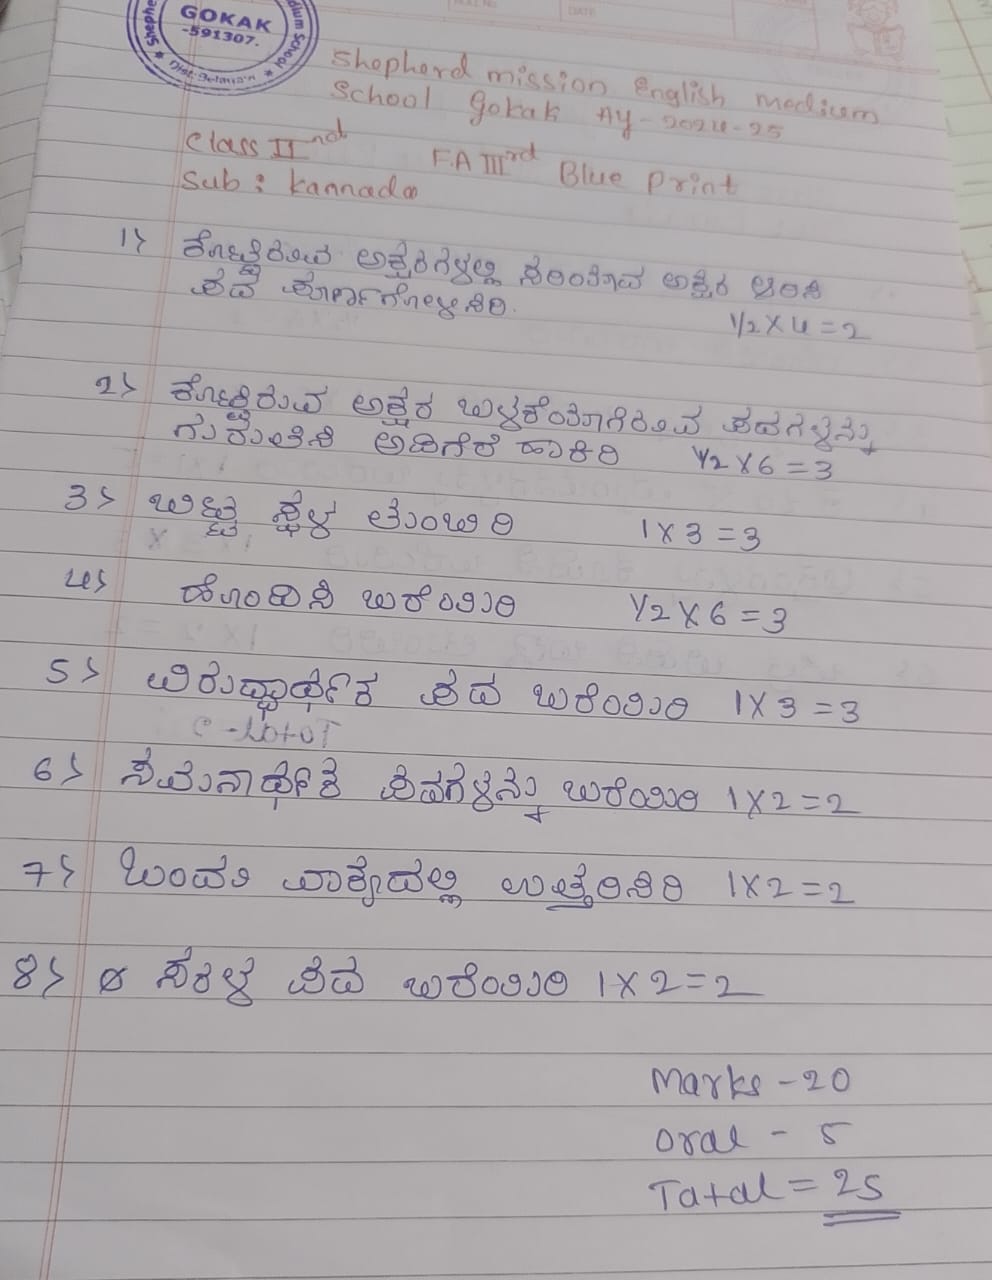 GOKAK
-591307.
Shepherd mission English medium
School Gokak AY-2024-25
Class IInd F.A IIIrd Blue Print
Sub : Kannada
1> ಕೊಟ್ಟಿರುವ ಅಕ್ಷರಗಳಲ್ಲಿ ಸರಿಯಾದ ಅಕ್ಷರ ಆರಿಸಿ
ಪದ ಪೂರ್ಣಗೊಳಿಸಿರಿ. 1/2 X 4 = 2
2> ಕೊಟ್ಟಿರುವ ಅಕ್ಷರ ಬಳಕೆಯಾಗಿರುವ ಪದಗಳನ್ನು
ಗುರುತಿಸಿ ಅಡಿಗೆರೆ ಹಾಕಿರಿ 1/2 X 6 = 3
3> ಬಿಟ್ಟ ಸ್ಥಳ ತುಂಬಿರಿ 1 X 3 = 3
4> ಹೊಂದಿಸಿ ಬರೆಯಿರಿ 1/2 X 6 = 3
5> ವಿರುದ್ಧಾರ್ಥಕ ಪದ ಬರೆಯಿರಿ 1 X 3 = 3
6> ಸಮನಾರ್ಥಕ ಪದಗಳನ್ನು ಬರೆಯಿರಿ 1 X 2 = 2
7> ಒಂದು ವಾಕ್ಯದಲ್ಲಿ ಉತ್ತರಿಸಿರಿ 1 X 2 = 2
8> ಸರಳ ಪದ ಬರೆಯಿರಿ 1 X 2 = 2
Marks - 20
Oral - 5
Tatal = 25